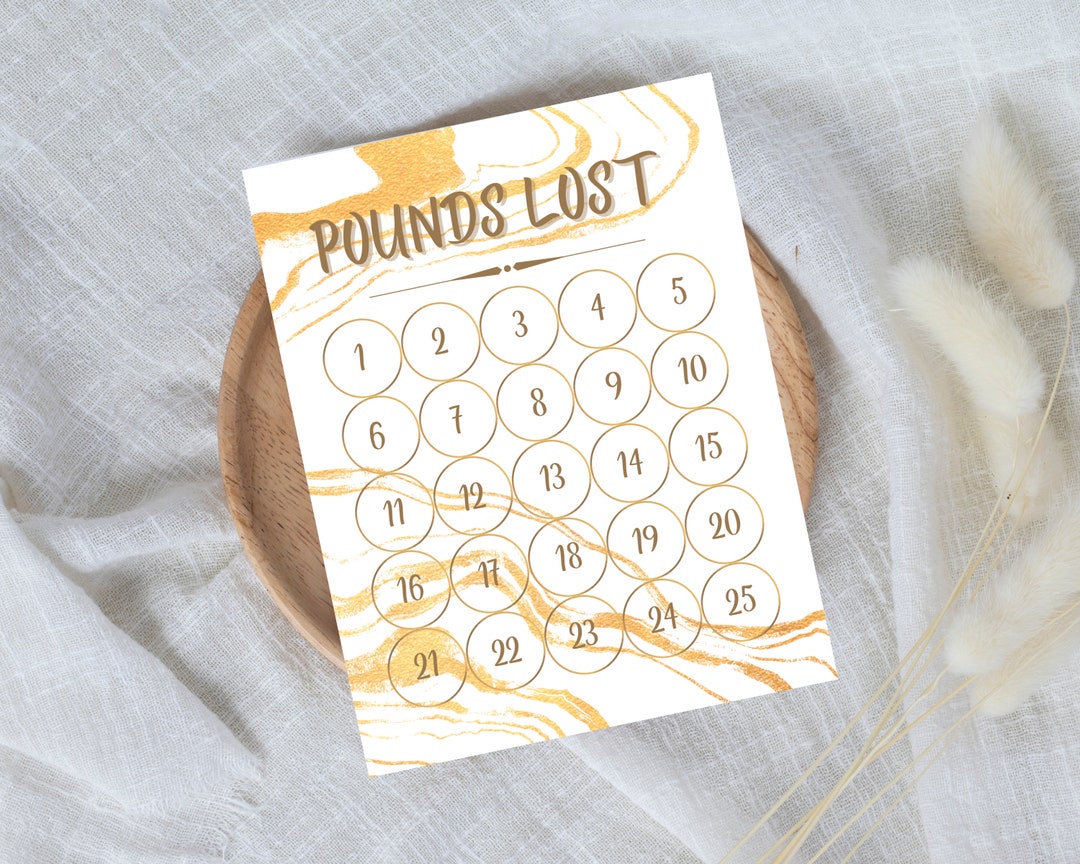 POUNDS LOST
1 2 3 4 5
6 7 8 9 10
11 12 13 14 15
16 17 18 19 20
21 22 23 24 25